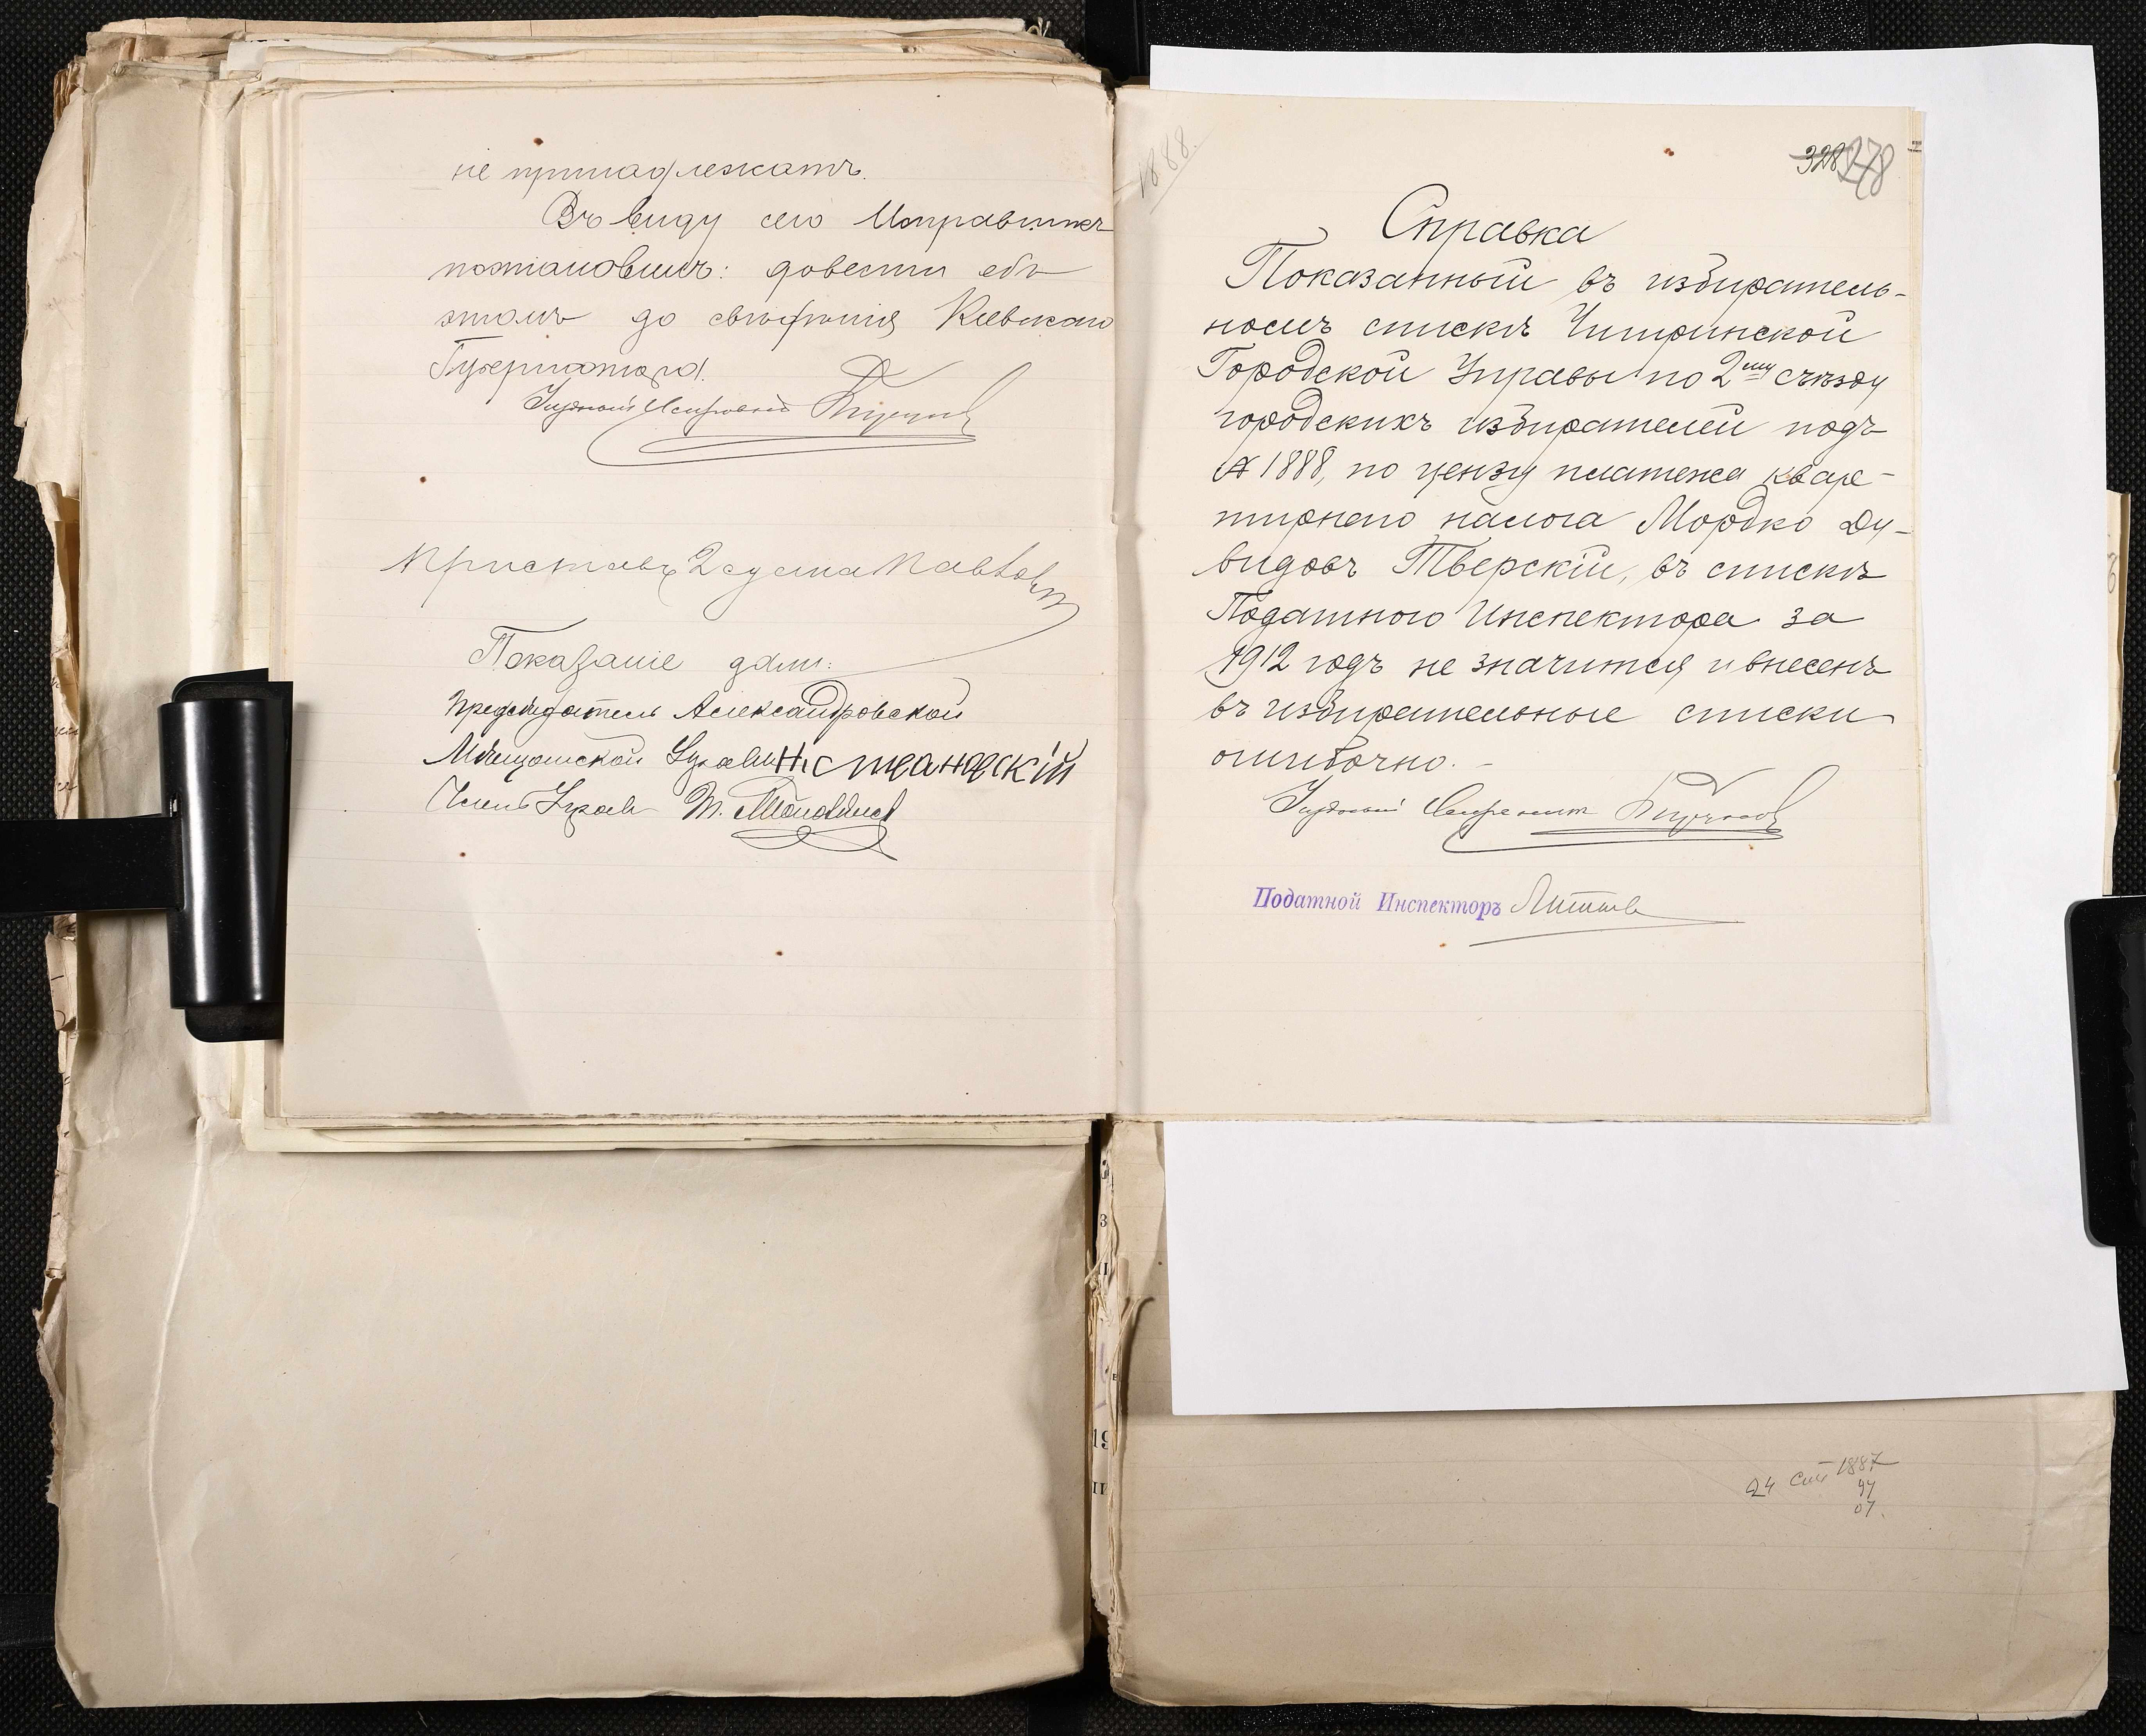 не принадлежатъ.
Въ виду сего Исправникъ
постановилъ: довести объ
этомъ до свѣдѣнія Кіевскаго
Губернатора.
Уѣздный Исправникъ
Приставъ 2 стана
Показаніе дали:
Предсѣдатель Александровской
Мѣщанской Управы
Членъ Управы
1888.
328 278
Справка
Показанный въ избиратель-
номъ спискѣ Чигринской
Городской Управы по 2му съѣзду
городскихъ избирателей подъ
№ 1888, по цензу платежа квар-
тирнаго налога Мордко Ду-
видовъ Тверскій, въ спискѣ
Податного Инспектора за
1912 годъ не значится и внесенъ
въ избирательные списки
ошибочно. -
Уѣздный Исправникъ
Податной Инспекторъ
24 1887
97
07.